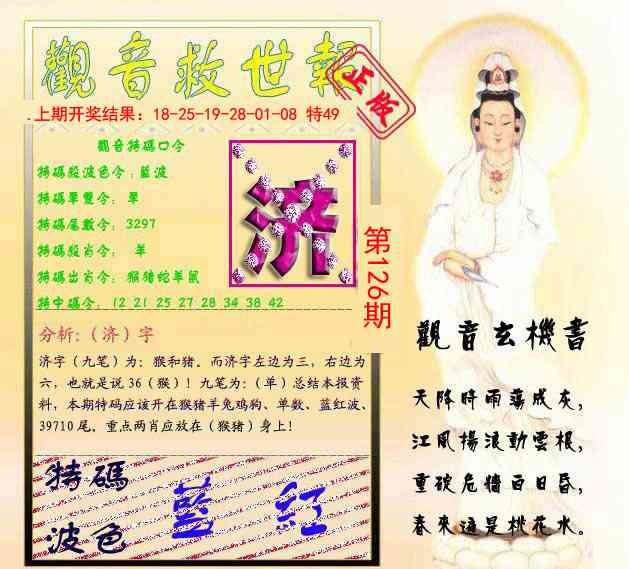 觀音救世報
正版
上期开奖结果：18-25-19-28-01-08 特49
觀音特碼口令
特碼殺波色令：藍波
特碼單雙令：單
特碼尾數令：3297
特碼殺肖令： 羊
特碼出肖令：猴猪蛇羊鼠
特中碼令：12 21 25 27 28 34 38 42
济
第126期
分析:（济）字
济字（九笔）为：猴和猪。而济字左边为三，右边为
六，也就是说 36（猴）！九笔为：（单）总结本报资
料，本期特码应该开在猴猪羊兔鸡狗、单数、蓝红波、
39710 尾。重点两肖应放在（猴猪）身上！
特碼
波色
藍 紅
觀音玄機書
天降時雨落成灰，
江風揚浪動雲根，
重破危牆百日昏，
春來遍是桃花水。